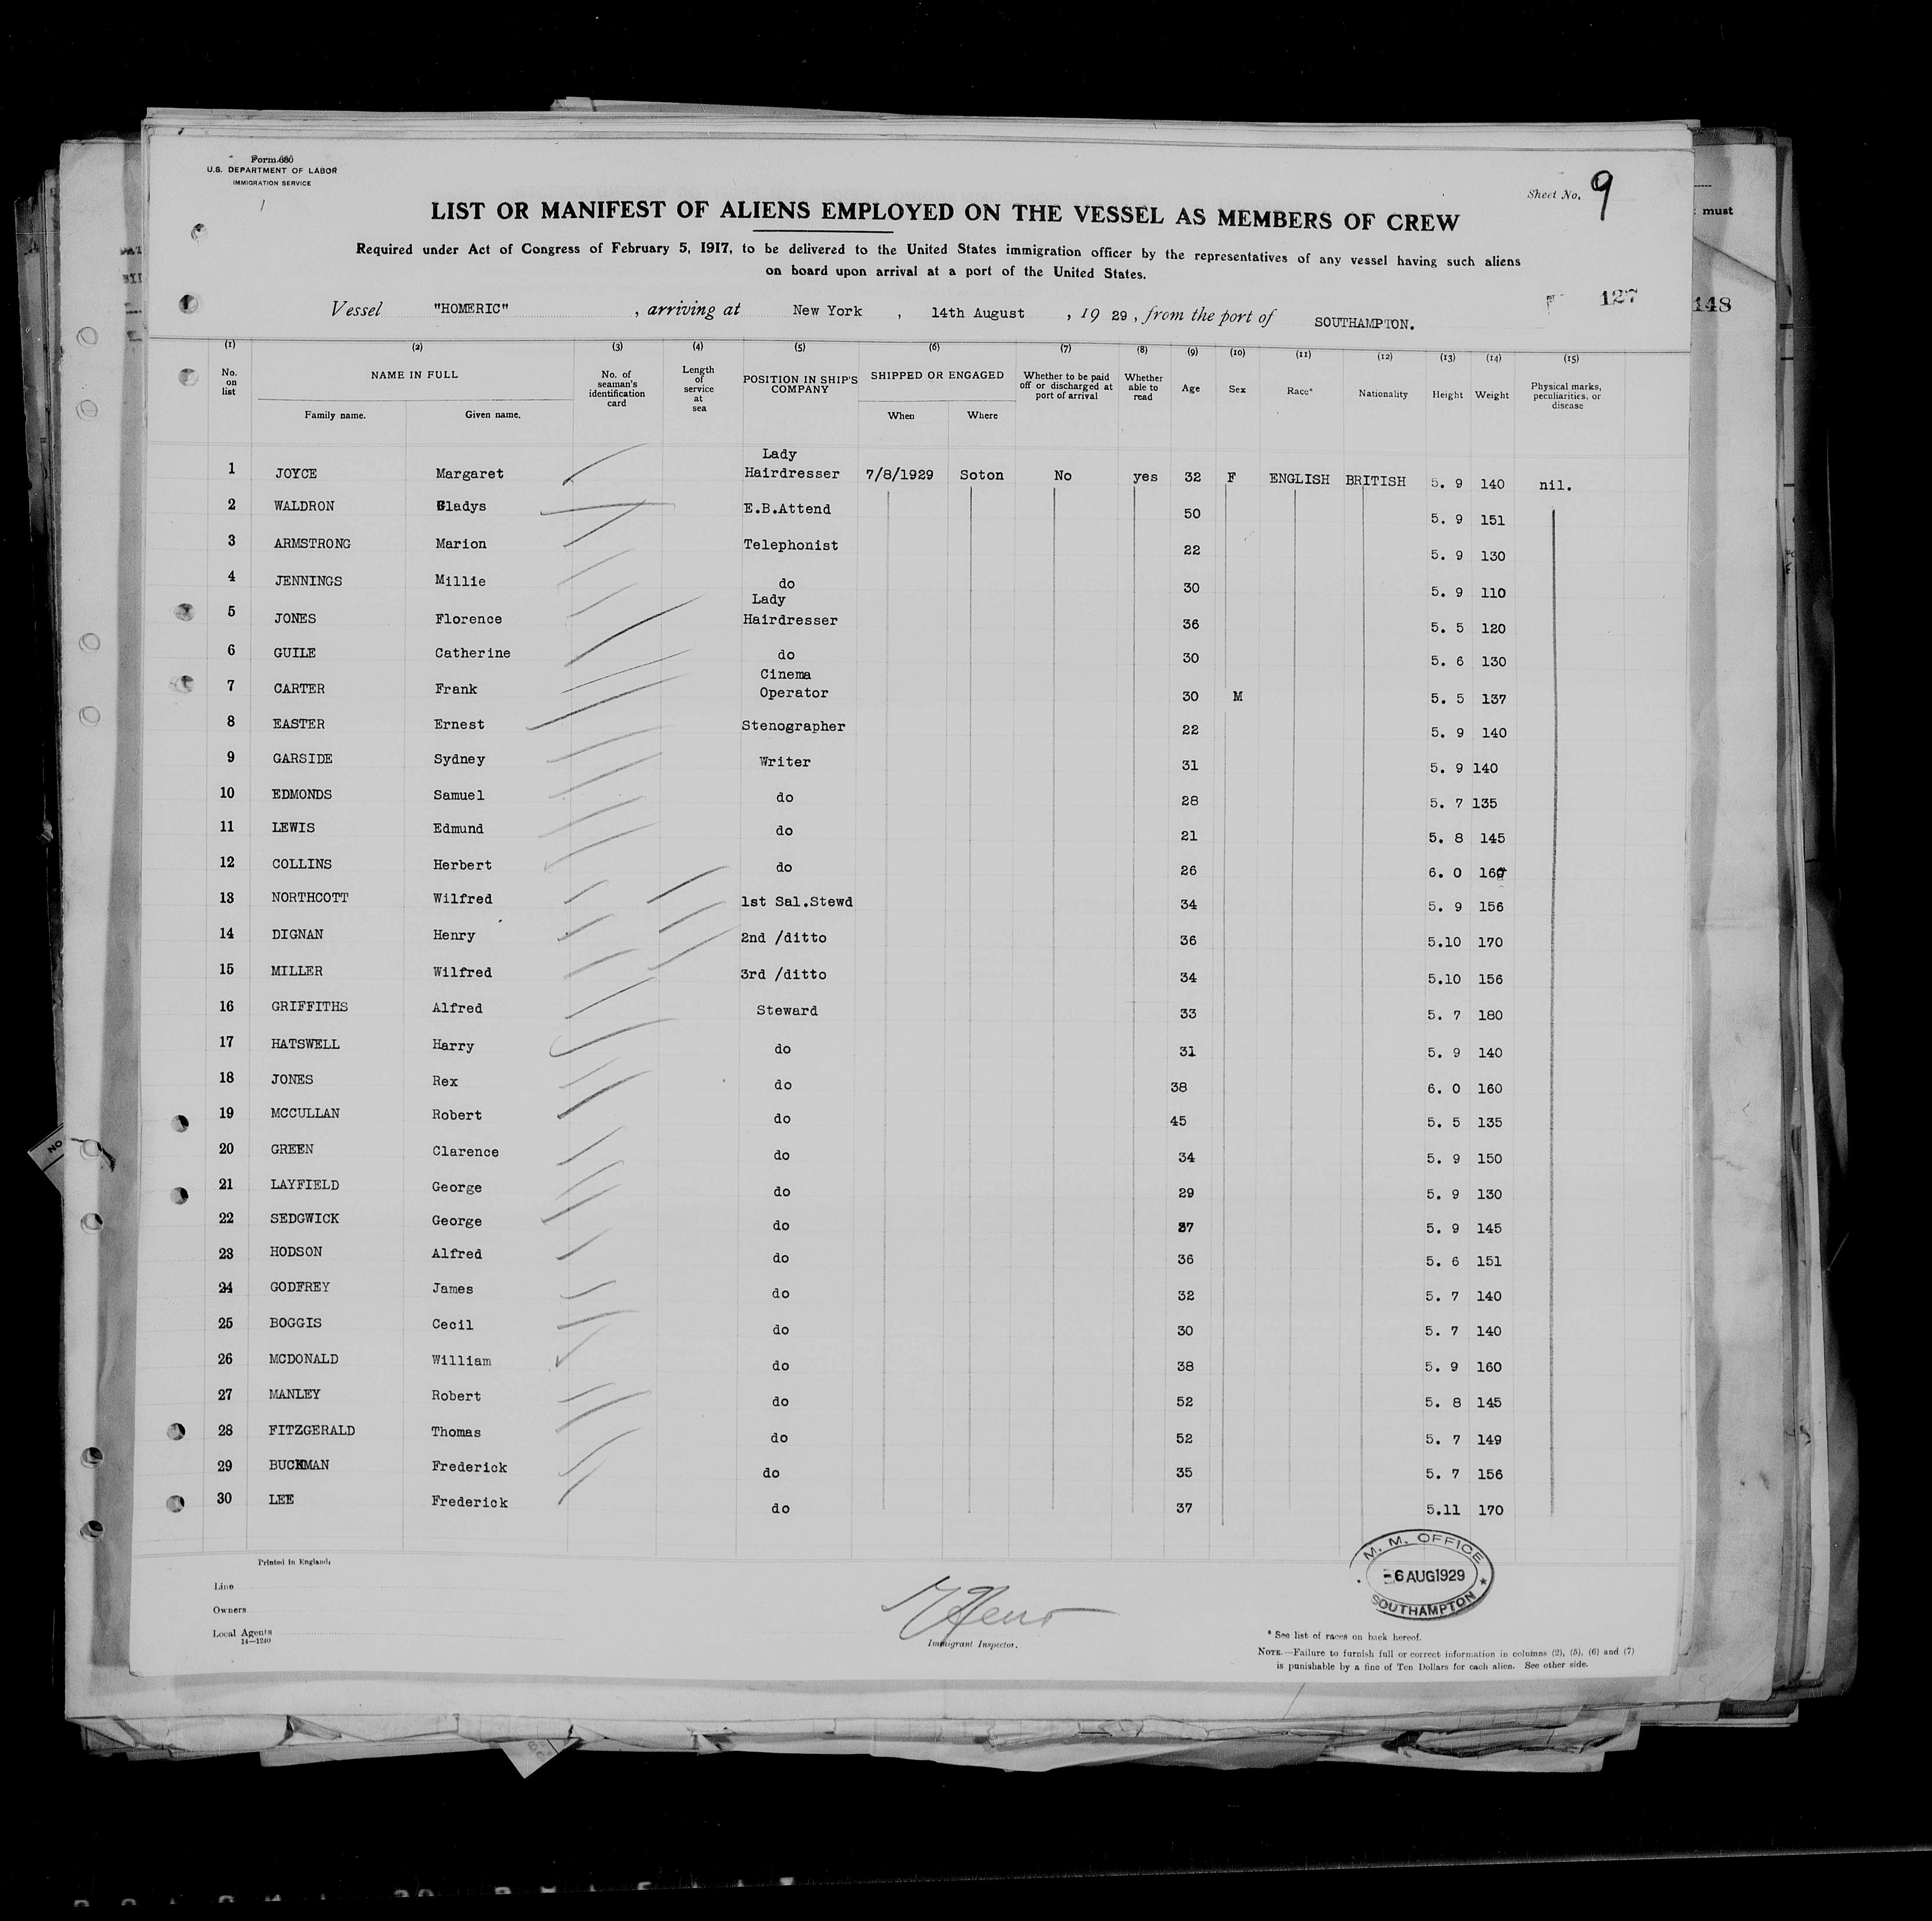 Form 680
U.S. DEPARTMENT OF LABOR
IMMIGRATION SERVICE
Sheet No. 9
LIST OR MANIFEST OF ALIENS EMPLOYED ON THE VESSEL AS MEMBERS OF CREW
Required under Act of Congress of February 5, 1917, to be delivered to the United States immigration officer by the representatives of any vessel having such aliens
on board upon arrival at a port of the United States.
must
Vessel "HOMERIC", arriving at New York, 14th August, 1929, from the port of SOUTHAMPTON.
127
148
(1) (2) (3) (4) (5) (6) (7) (8) (9) (10) (11) (12) (13) (14) (15)
No. on list NAME IN FULL Family name. Given name. No. of seaman's identification card Length of service at sea POSITION IN SHIP'S COMPANY SHIPPED OR ENGAGED When Where Whether to be paid off or discharged at port of arrival Whether able to read Age Sex Race* Nationality Height Weight Physical marks, peculiarities, or disease
1 JOYCE Margaret Lady Hairdresser 7/8/1929 Soton No yes 32 F ENGLISH BRITISH 5. 9 140 nil.
2 WALDRON Gladys E.B.Attend 50 5. 9 151
3 ARMSTRONG Marion Telephonist 22 5. 9 130
4 JENNINGS Millie do 30 5. 9 110
5 JONES Florence Lady Hairdresser 36 5. 5 120
6 GUILE Catherine do 30 5. 6 130
7 CARTER Frank Cinema Operator 30 M 5. 5 137
8 EASTER Ernest Stenographer 22 5. 9 140
9 GARSIDE Sydney Writer 31 5. 9 140
10 EDMONDS Samuel do 28 5. 7 135
11 LEWIS Edmund do 21 5. 8 145
12 COLLINS Herbert do 26 6. 0 160
13 NORTHCOTT Wilfred 1st Sal.Stewd 34 5. 9 156
14 DIGNAN Henry 2nd /ditto 36 5.10 170
15 MILLER Wilfred 3rd /ditto 34 5.10 156
16 GRIFFITHS Alfred Steward 33 5. 7 180
17 HATSWELL Harry do 31 5. 9 140
18 JONES Rex do 38 6. 0 160
19 MCCULLAN Robert do 45 5. 5 135
20 GREEN Clarence do 34 5. 9 150
21 LAYFIELD George do 29 5. 9 130
22 SEDGWICK George do 37 5. 9 145
23 HODSON Alfred do 36 5. 6 151
24 GODFREY James do 32 5. 7 140
25 BOGGIS Cecil do 30 5. 7 140
26 MCDONALD William do 38 5. 9 160
27 MANLEY Robert do 52 5. 8 145
28 FITZGERALD Thomas do 52 5. 7 149
29 BUCKMAN Frederick do 35 5. 7 156
30 LEE Frederick do 37 5.11 170
Printed in England.
Line
Owners
Local Agents
14—1240
Immigrant Inspector.
M. M. OFFICE
-6 AUG 1929
SOUTHAMPTON
* See list of races on back hereof.
NOTE.—Failure to furnish full or correct information in columns (2), (5), (6) and (7)
is punishable by a fine of Ten Dollars for each alien. See other side.